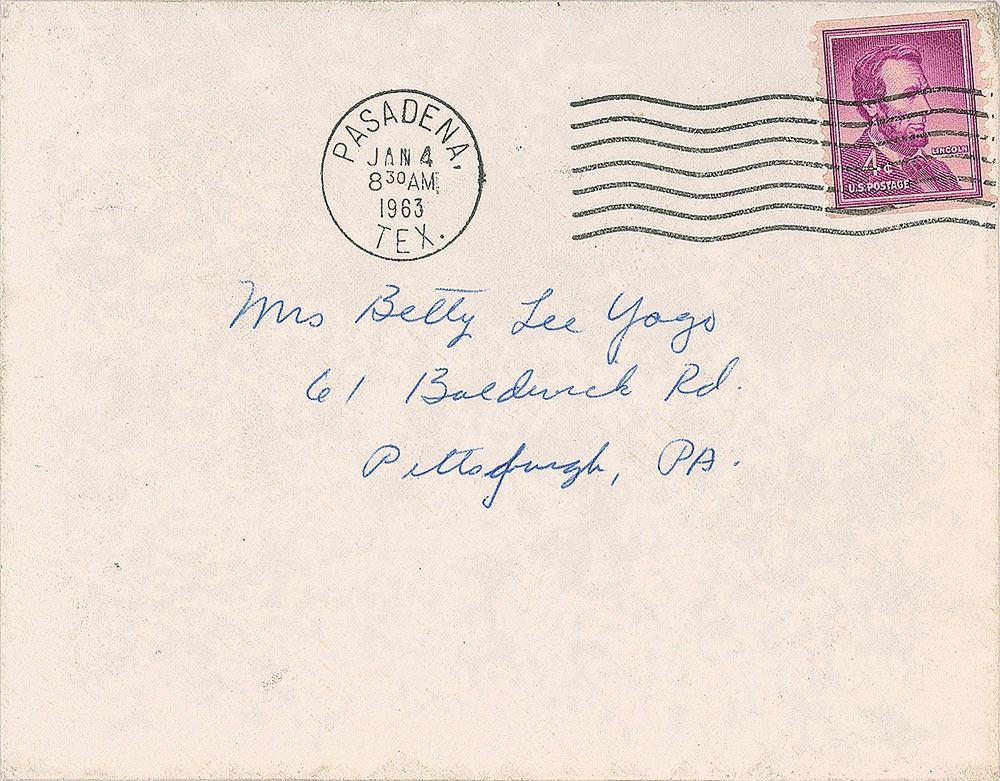 PASADENA,
JAN 4
8 30 AM
1963
TEX.
LINCOLN
4¢
U.S. POSTAGE
Mrs Betty Lee Yago
61 Baldwick Rd.
Pittsburgh, PA.